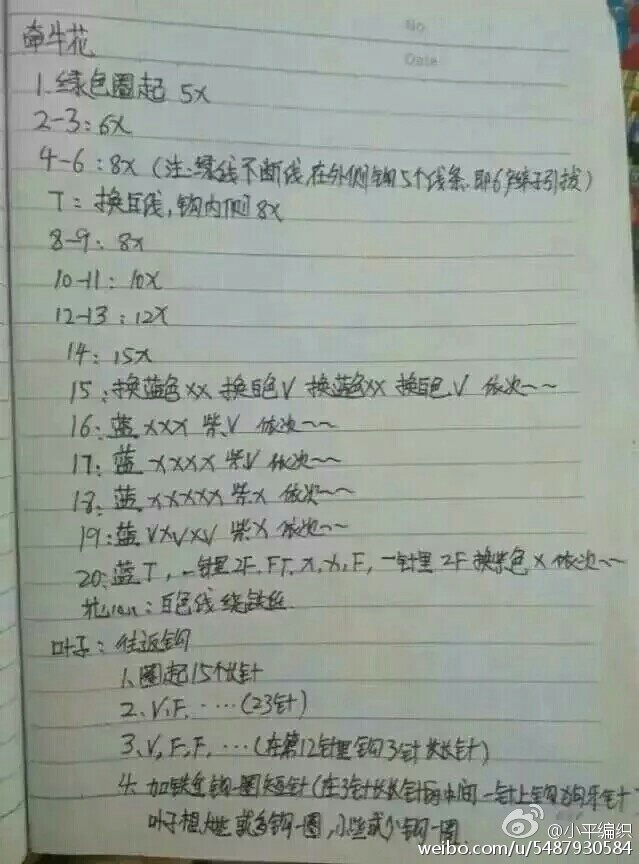 No
Date
牵牛花
1.绿色圈起 5X
2-3:6X
4-6:8X(注:绿线不断线,在外侧钩5个线条.即6个辫子引拔)
7:换白线,钩内侧8X
8-9:8X
10-11:10X
12-13:12X
14:15X
15:换蓝色XX 换白色V 换蓝色XX 换白色V 依次~~
16:蓝XXX 柴V 依次~~
17:蓝XXXX 柴V 依次~~
18:蓝XXXXX 柴X 依次~~
19:蓝VXVXV 柴X 依次~~
20:蓝T,一针里2F,FT,X,X,F,一针里2F 换柴色X 依次~~
花:白色线绕铁丝.
叶子:往返钩
1.圈起15个长针
2.V.F.……(23针)
3.V,F,F,……(在第12针里钩3针长长针)
4.加铁丝钩一圈短针(在3针长长针的中间一针上钩狗牙针)
叶子想大些或多钩一圈,小些或少钩一圈.
@小平编织
weibo.com/u/5487930584